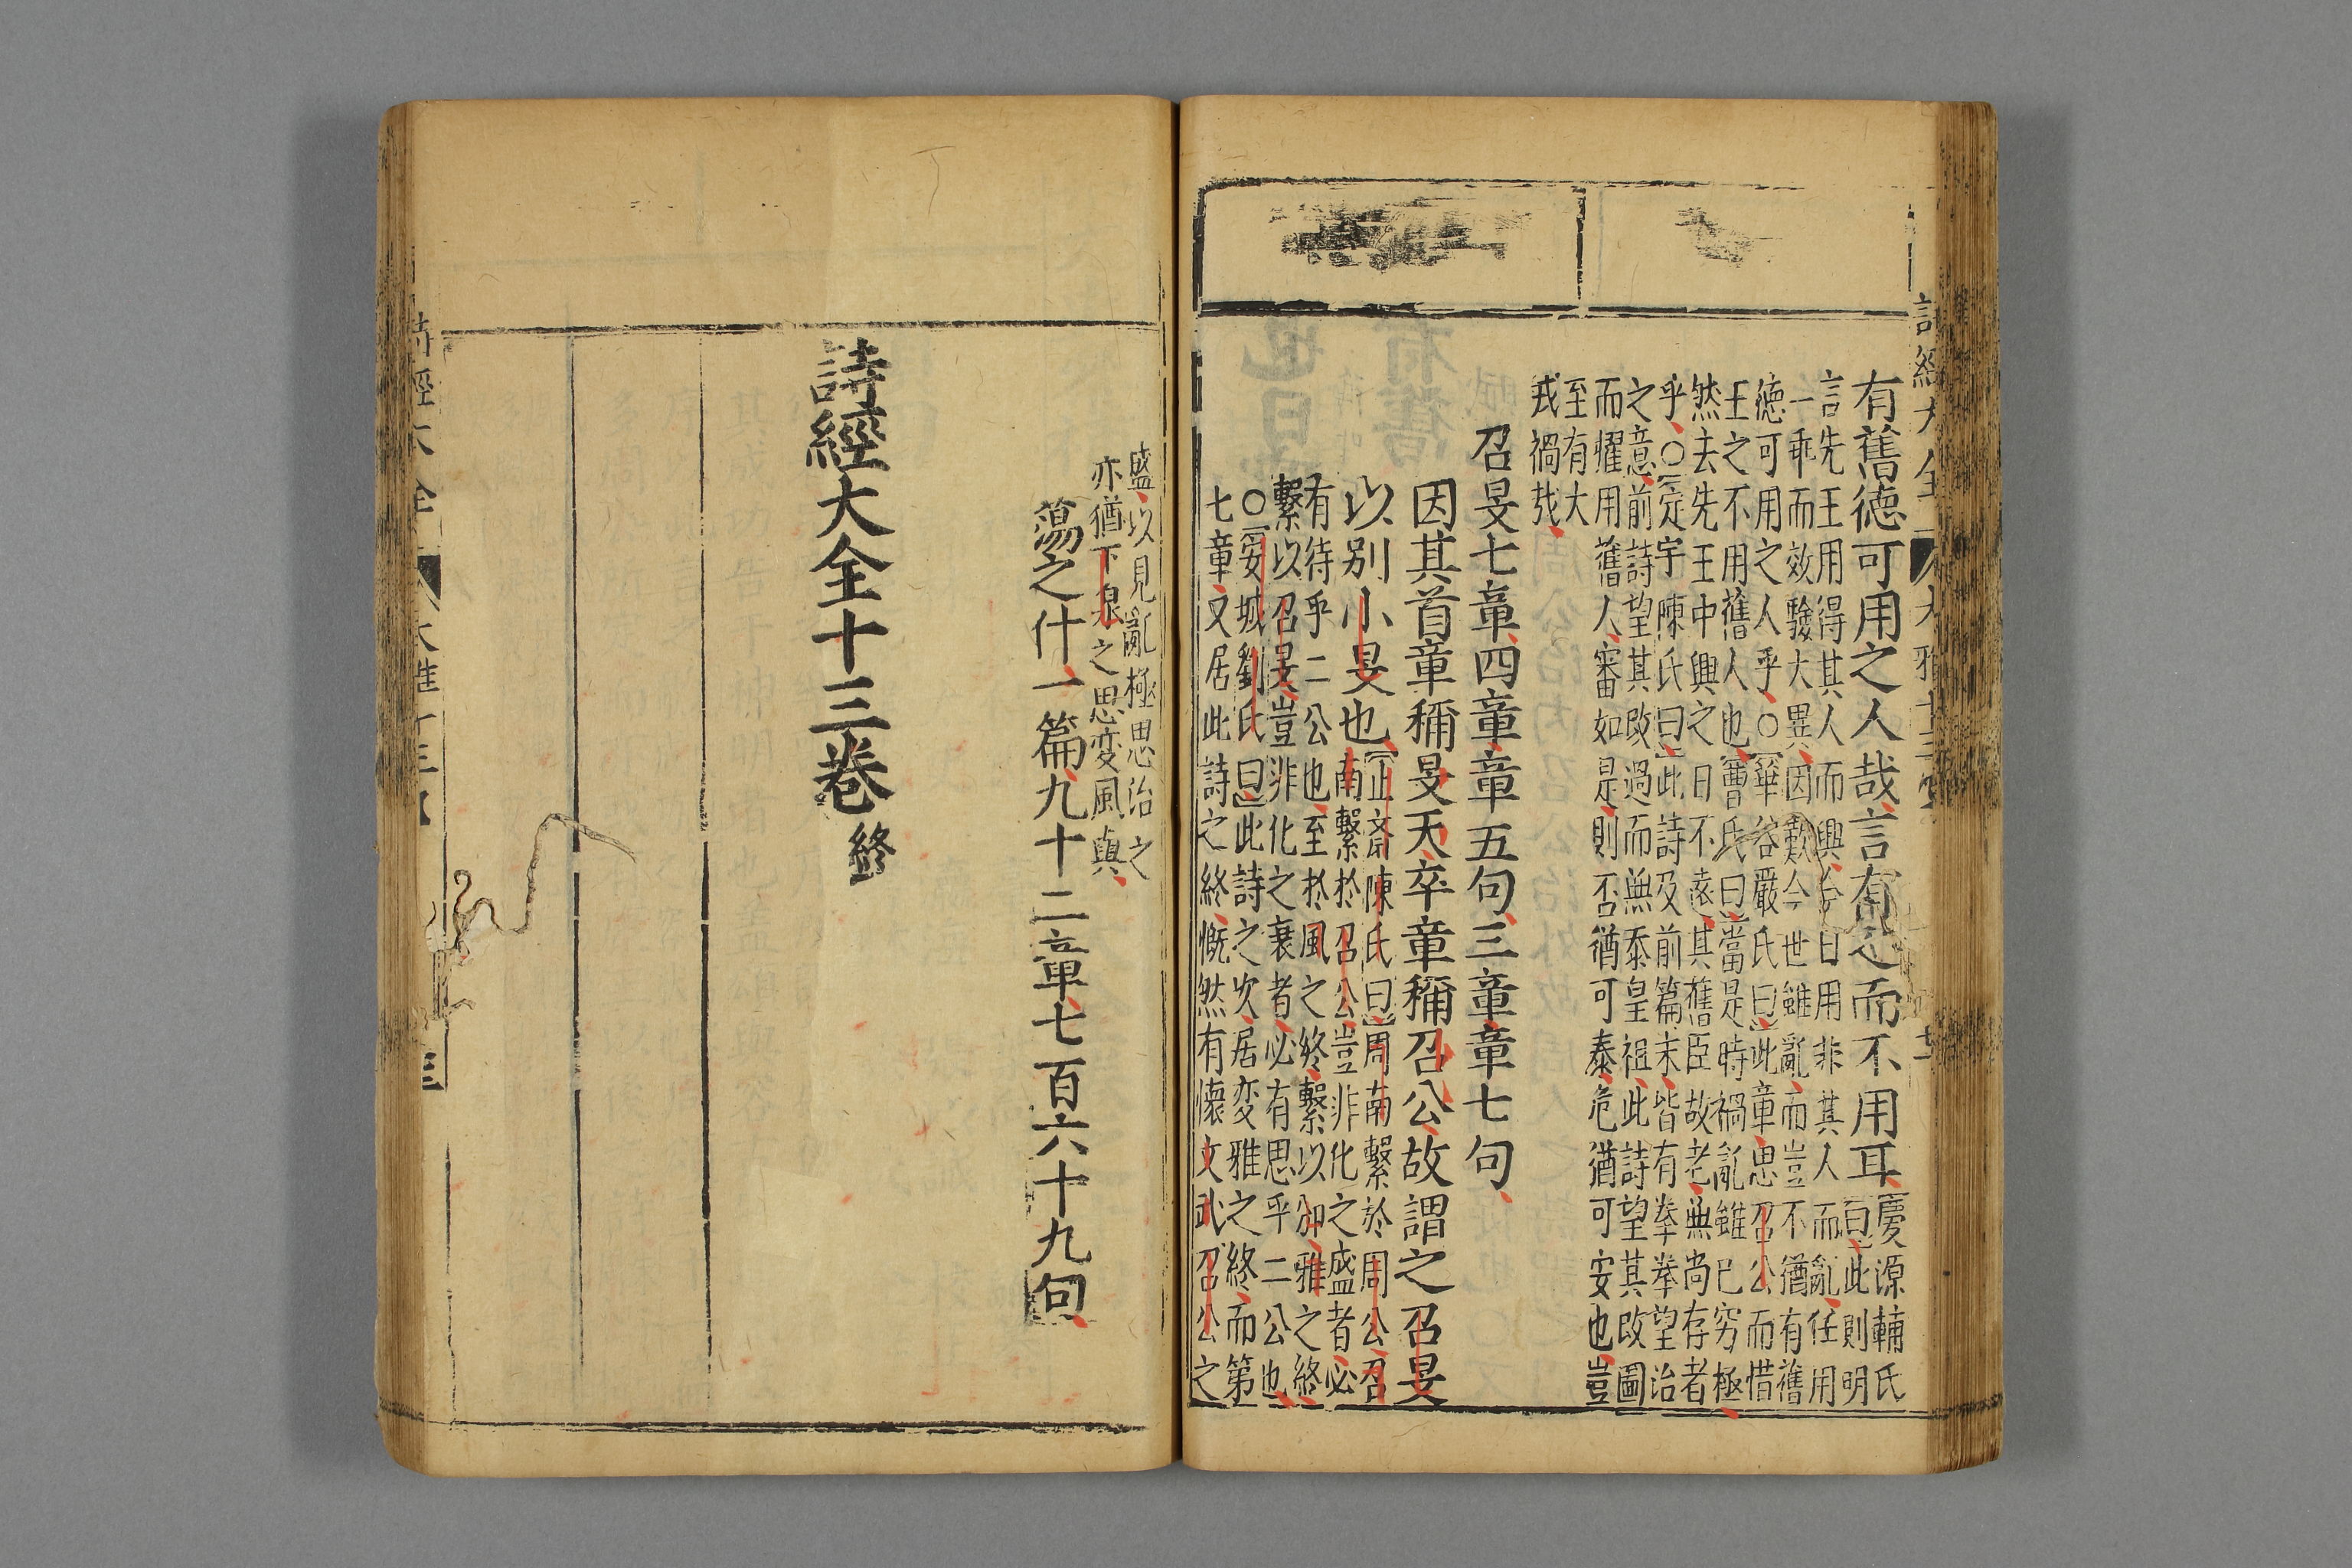 有舊德可用之人哉言有之而不用耳慶源輔氏
曰此則明
言先王用得其人而興今日用非其人而亂任用
一乖而效驗大異因歎今世雖亂而豈不猶有舊
德可用之人乎○華谷嚴氏曰此章思召公而惜
王之不用舊人也曹氏曰當是時禍亂雖已窮極
然去先王中興之日不遠其舊臣故老無尚存者
乎○定宇陳氏曰此詩及前篇末皆有拳拳望治
之意前詩望其改過而無忝皇祖此詩望其改圖
而懼用舊人審如是則否猶可泰危猶可安也豈
至有大
戎禍哉
召旻七章四章章五句三章章七句
因其首章稱旻天卒章稱召公故謂之召旻
以別小旻也
正齋陳氏曰周南繫於周公召
南繫於召公豈非化之盛者必
有待乎二公也至於風之終繫以豳雅之終
繫以召旻豈非化之衰者必有思乎二公也
○安城劉氏曰此詩之次居変雅之終而第
七章又居此詩之終慨然有懷文武召公之
盛以見亂極思治之
亦猶下泉之思変風與
蕩之什一篇九十二章七百六十九句
詩經大全十三卷終